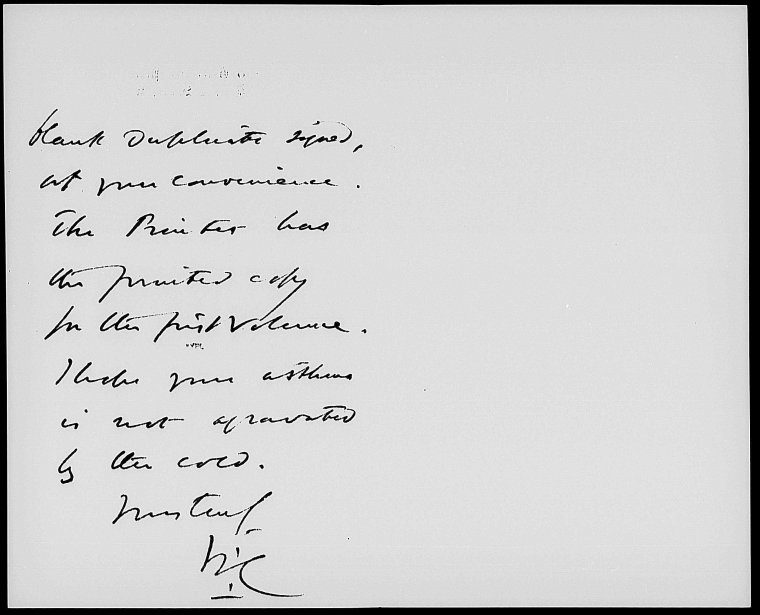 blank Duplicate signed,
at your convenience.
The Printer has
the printed copy
for the first Volume.
I hope your asthma
is not agravated
by the cold.
Yours truly